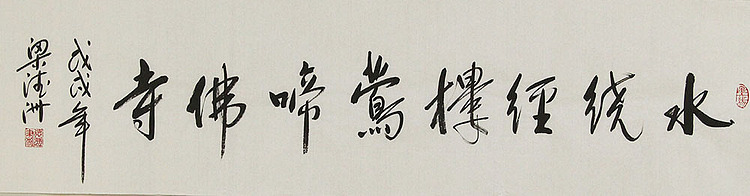 水绕经楼莺啼佛寺
戊戌年
梁德洲